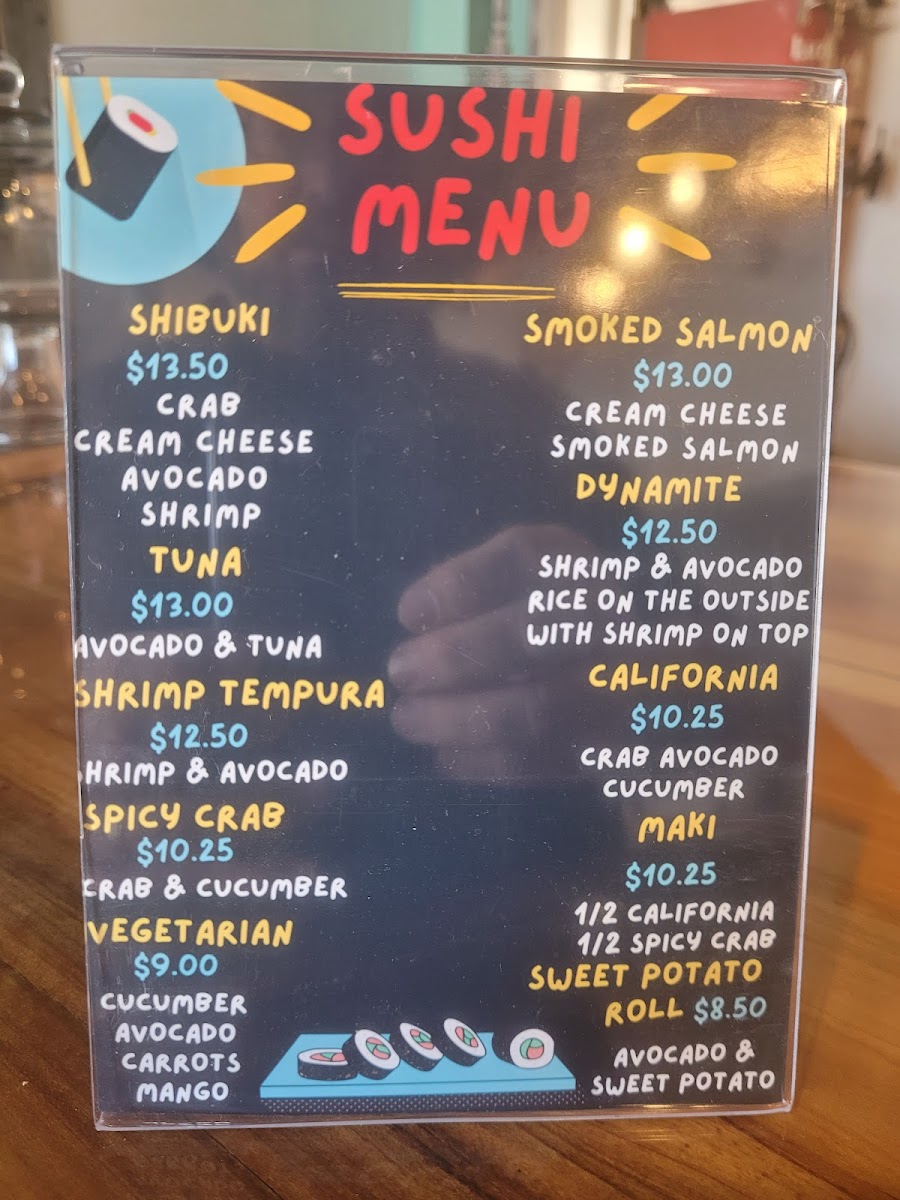 SUSHI
MENU
SHIBUKI
$13.50
CRAB
CREAM CHEESE
AVOCADO
SHRIMP
TUNA
$13.00
AVOCADO & TUNA
SHRIMP TEMPURA
$12.50
HRIMP & AVOCADO
SPICY CRAB
$10.25
CRAB & CUCUMBER
VEGETARIAN
$9.00
CUCUMBER
AVOCADO
CARROTS
MANGO
SMOKED SALMON
$13.00
CREAM CHEESE
SMOKED SALMON
DYNAMITE
$12.50
SHRIMP & AVOCADO
RICE ON THE OUTSIDE
WITH SHRIMP ON TOP
CALIFORNIA
$10.25
CRAB AVOCADO
CUCUMBER
MAKI
$10.25
1/2 CALIFORNIA
1/2 SPICY CRAB
SWEET POTATO
ROLL $8.50
AVOCADO &
SWEET POTATO